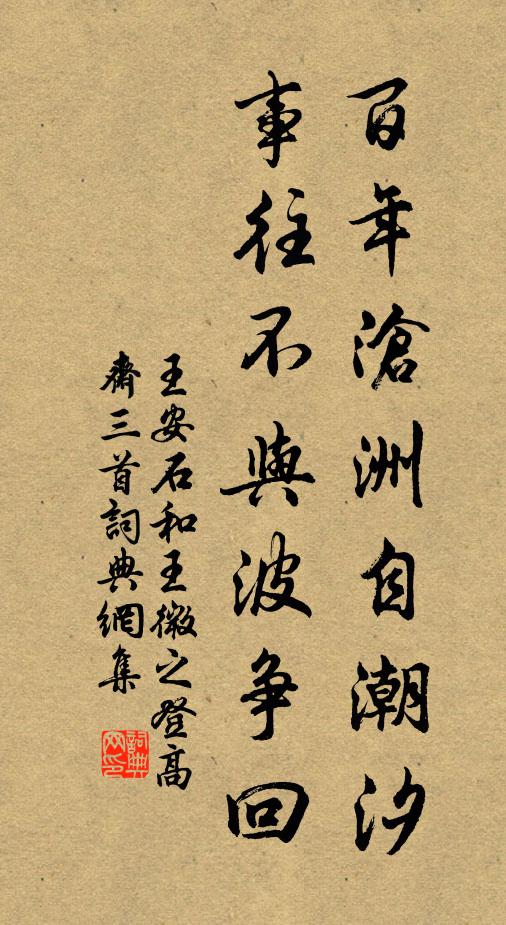 百年滄洲自潮汐
事往不與波争回
王安石和王微之登高
齋三首詞典網集
詞典
网印